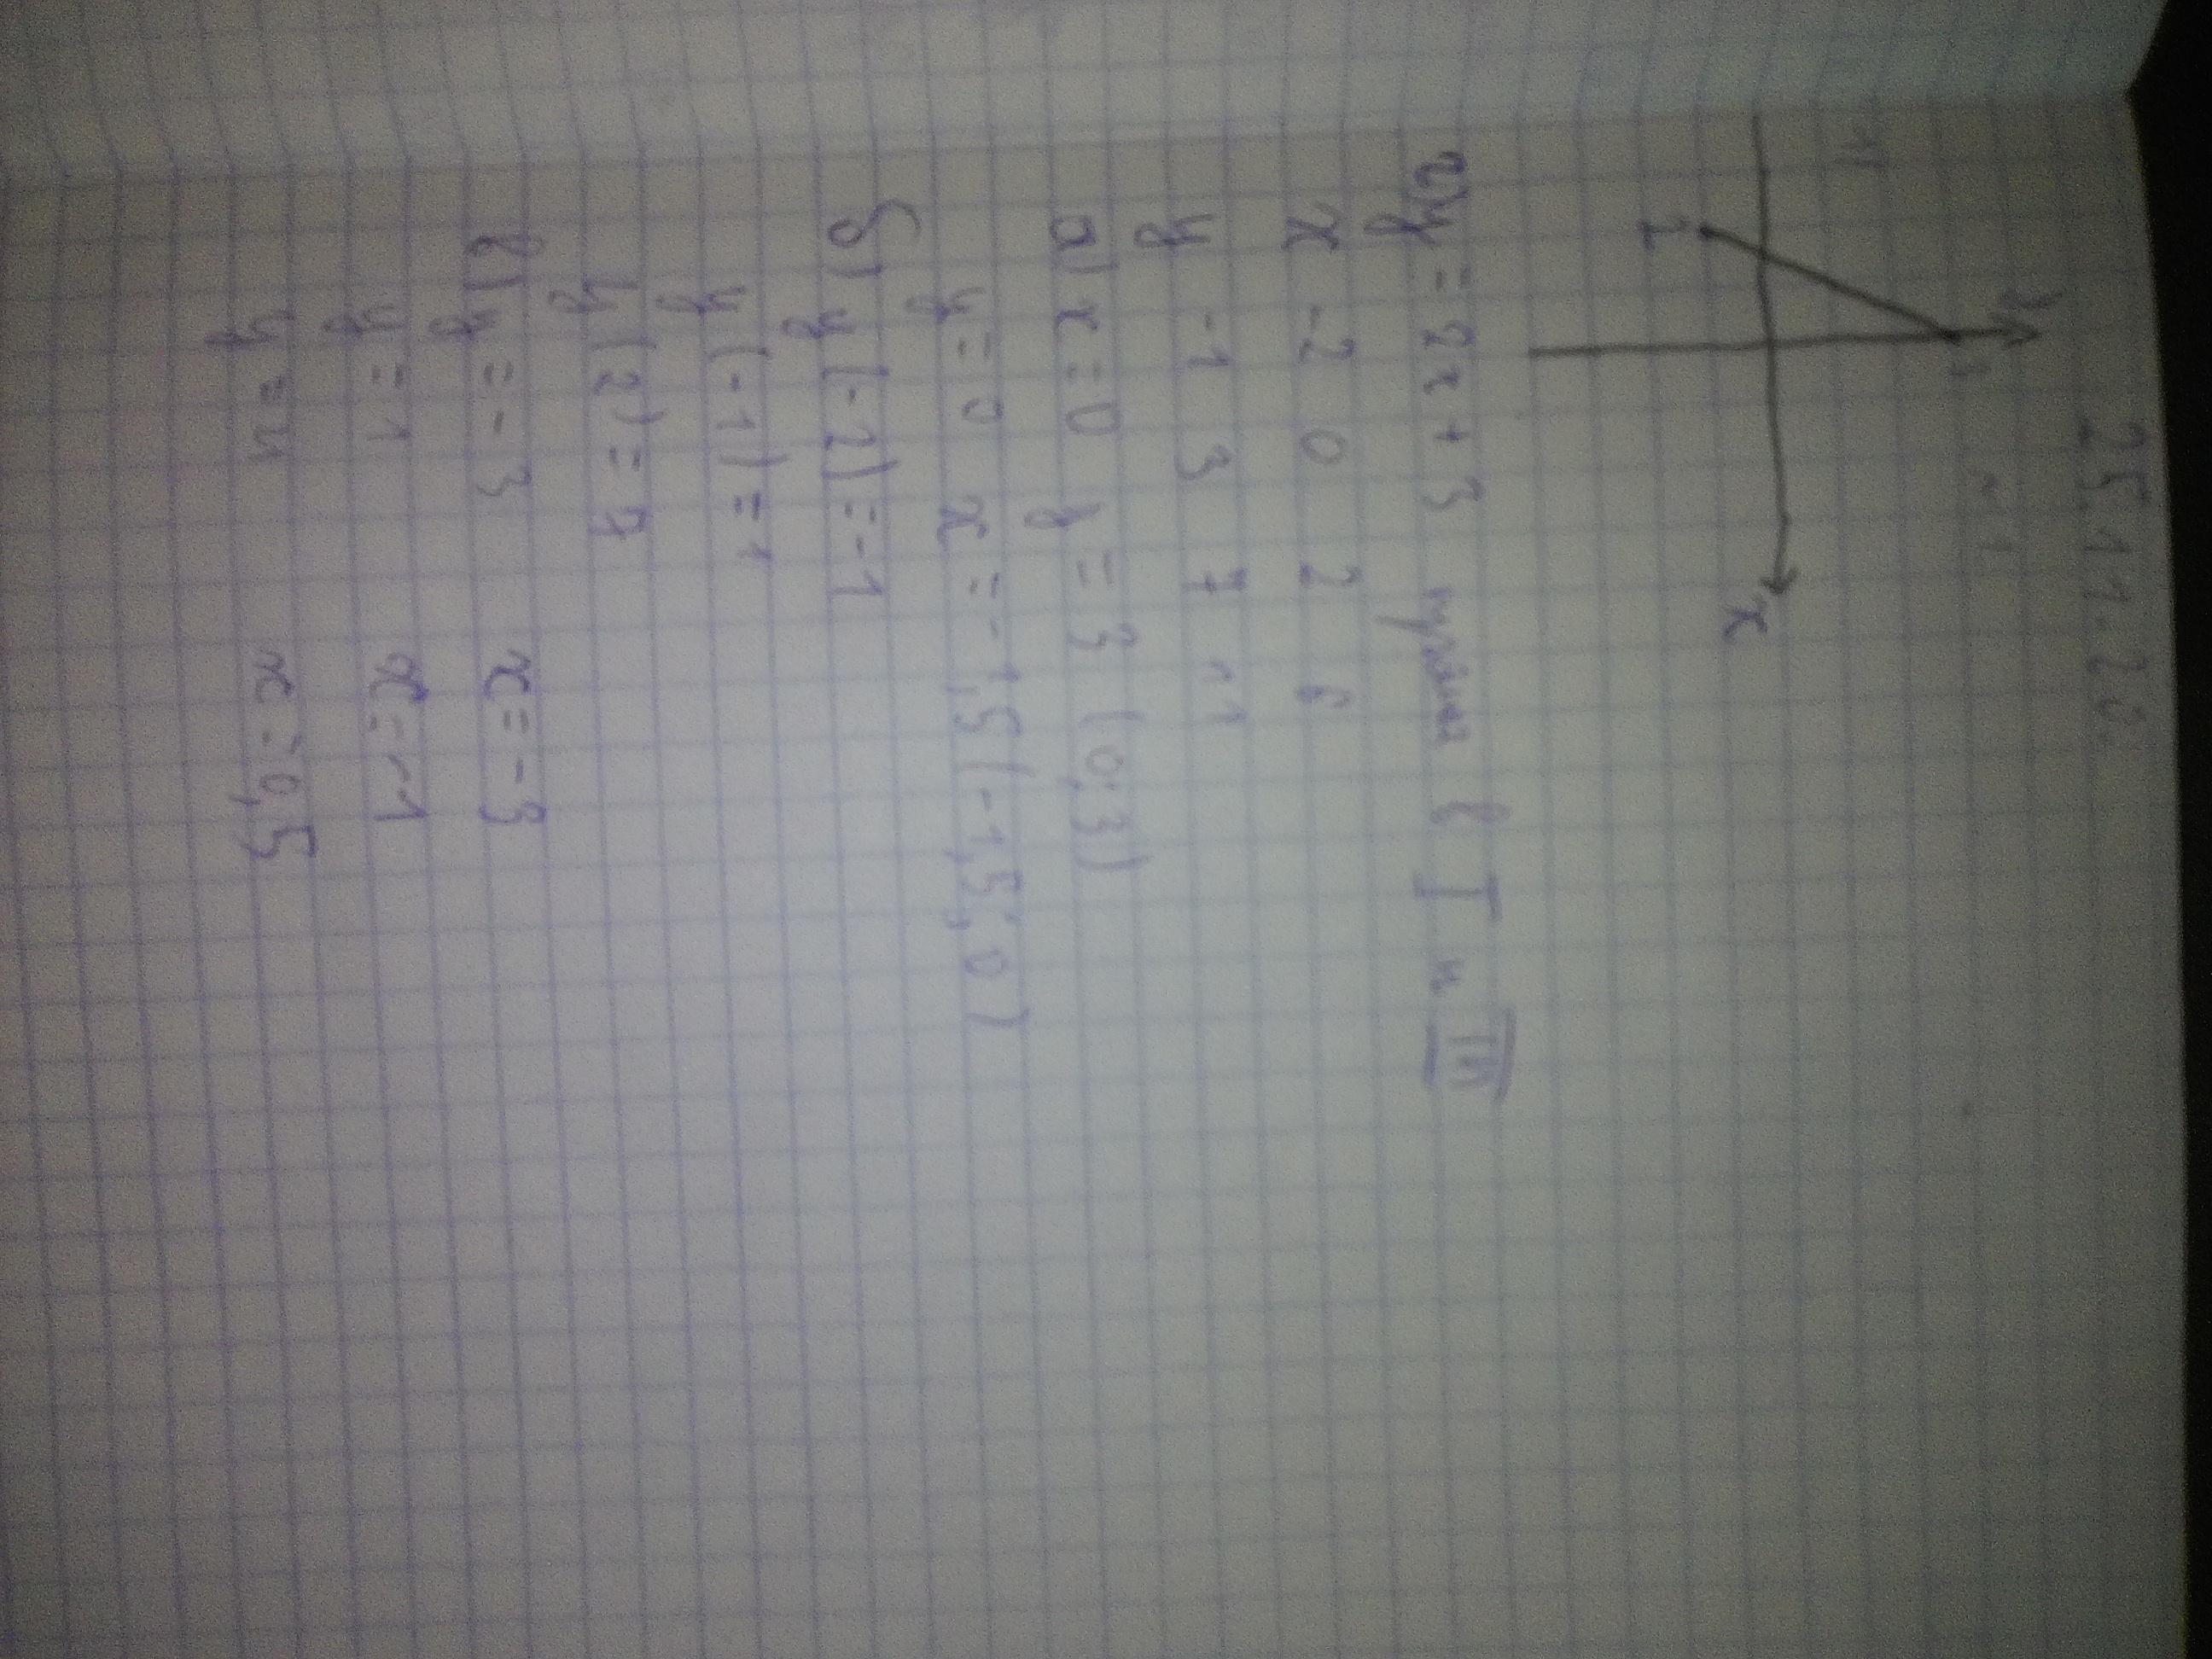 25.11.20
~1
y
3
x
1
y = 2x + 3 нужна в I и III
x -2 0 2
y -1 3 7 11
а) x = 0 y = 3 (0; 3)
y = 0 x = -1,5 (-1,5; 0)
б) y (-2) = -1
y (-1) = 1
y (2) = 7
в) y = -3 x = -3
y = 1 x = -1
y = 4 x = 0,5